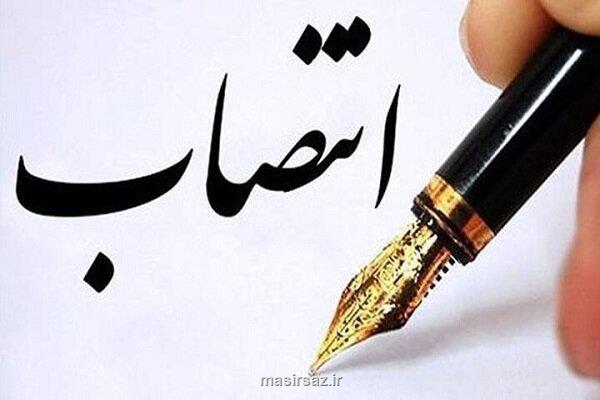 انتصاب
masirsaz.ir